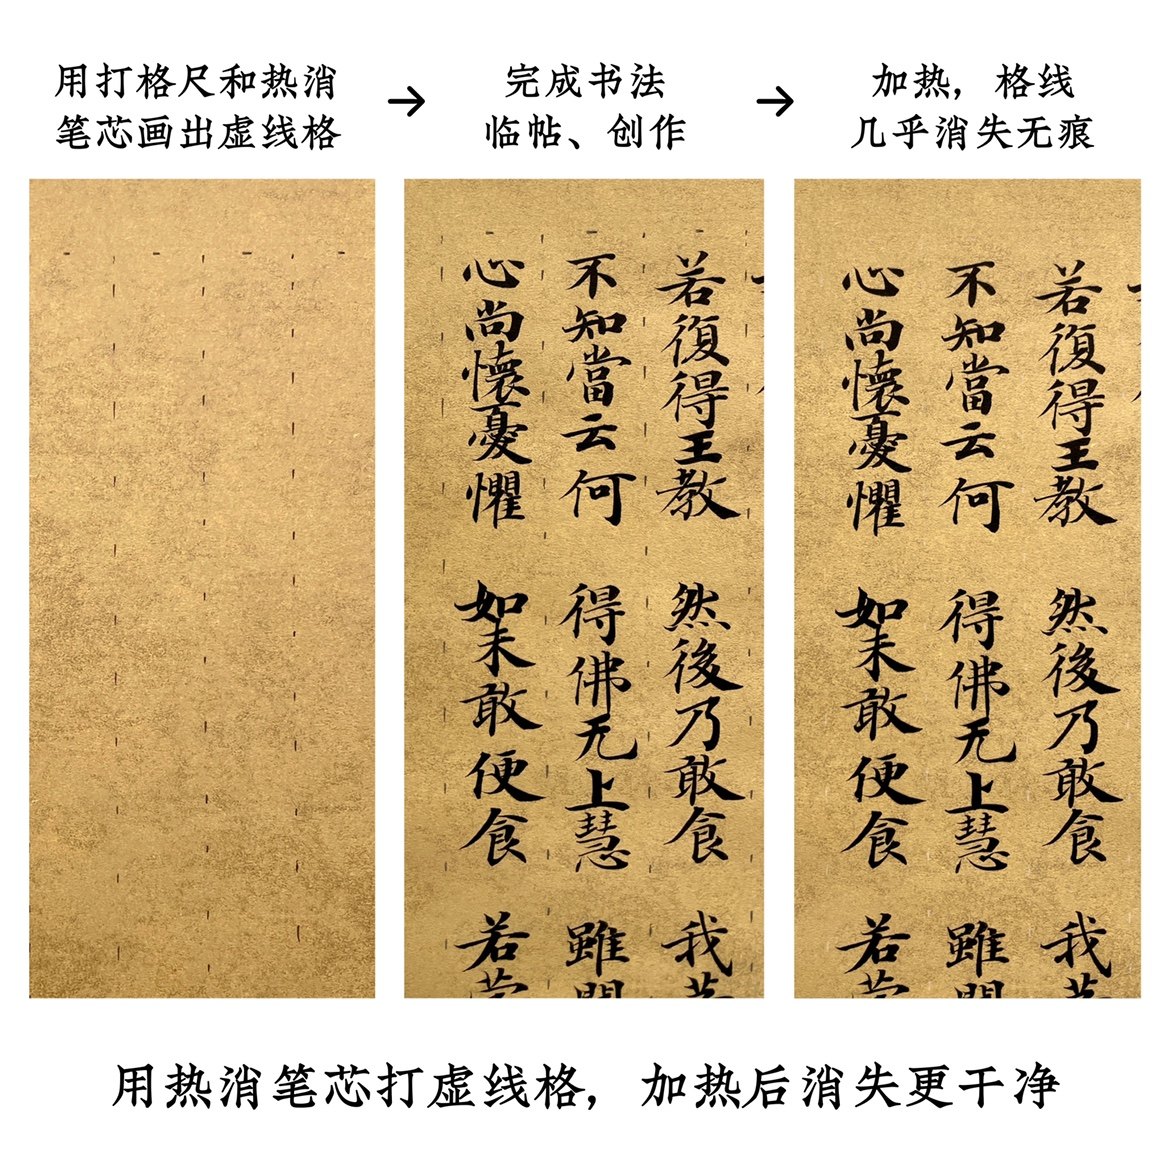 用打格尺和热消
笔芯画出虚线格
→
完成书法
临帖、创作
→
加热，格线
几乎消失无痕
若復得王教
然後乃敢食
我
不知當云何
得佛无上慧
雖
心尚懷憂懼
如未敢便食
若
若復得王教
然後乃敢食
我
不知當云何
得佛无上慧
雖
心尚懷憂懼
如未敢便食
若
用热消笔芯打虚线格，加热后消失更干净